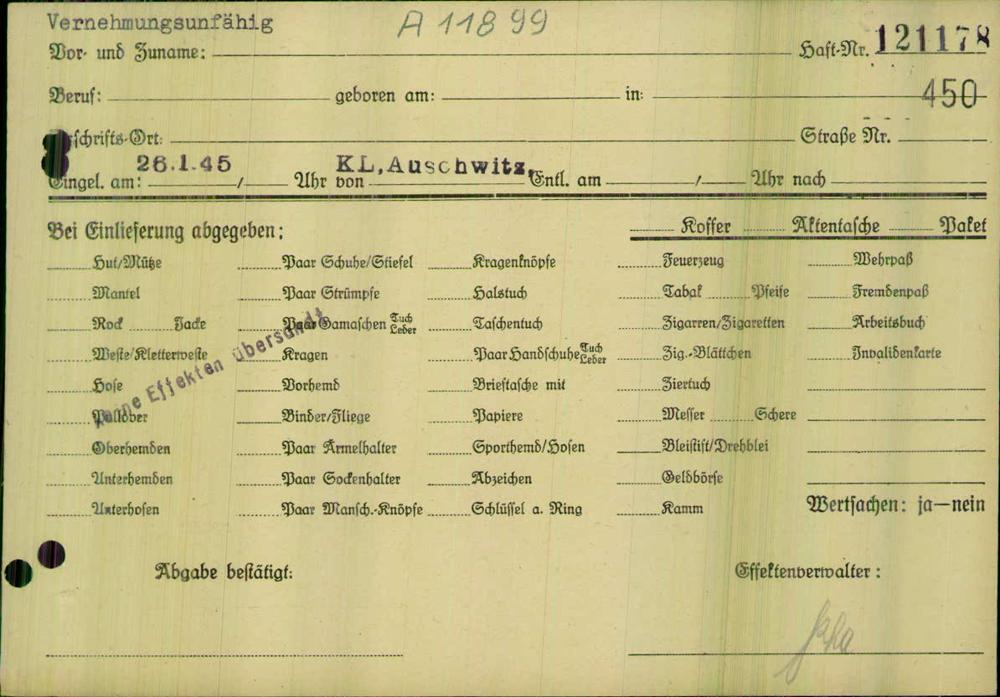 Vernehmungsunfähig A 11899
Vor- und Zuname: Haft-Nr. 121178
Beruf: geboren am: in: 450
schrifts-Ort: Straße Nr.
Eingel. am: 26.1.45 / Uhr von KL, Auschwitz, Entl. am / Uhr nach
Bei Einlieferung abgegeben: Koffer Aktentasche Paket
Hut/Mütze Paar Schuhe/Stiefel Kragenknöpfe Feuerzeug Wehrpaß
Mantel Paar Strümpfe Halstuch Tabak Pfeife Fremdenpaß
Rock Jacke Paar Gamaschen Tuch Leder Taschentuch Zigarren/Zigaretten Arbeitsbuch
Weste/Kletterweste Kragen Paar Handschuhe Tuch Leder Zig.-Blättchen Invalidenkarte
Hose Vorhemd Brieftasche mit Ziertuch
Pullover Binder/Fliege Papiere Messer Schere
Oberhemden Paar Ärmelhalter Sporthemd/Hosen Bleistift/Drehblei
Unterhemden Paar Sockenhalter Abzeichen Geldbörse
Unterhosen Paar Mansch.-Knöpfe Schlüssel a. Ring Kamm Wertsachen: ja—nein
Keine Effekten übersandt
Abgabe bestätigt: Effektenverwalter: